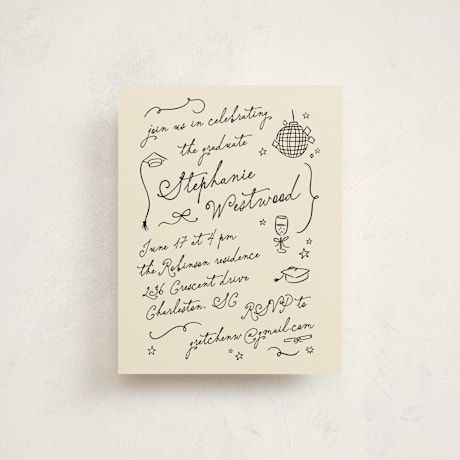 join us in celebrating
the graduate
Stephanie
Westwood
June 17 at 4 pm
the Robinson residence
2636 Crescent drive
Charleston, SC
RSVP to
gretchenw@gmail.com